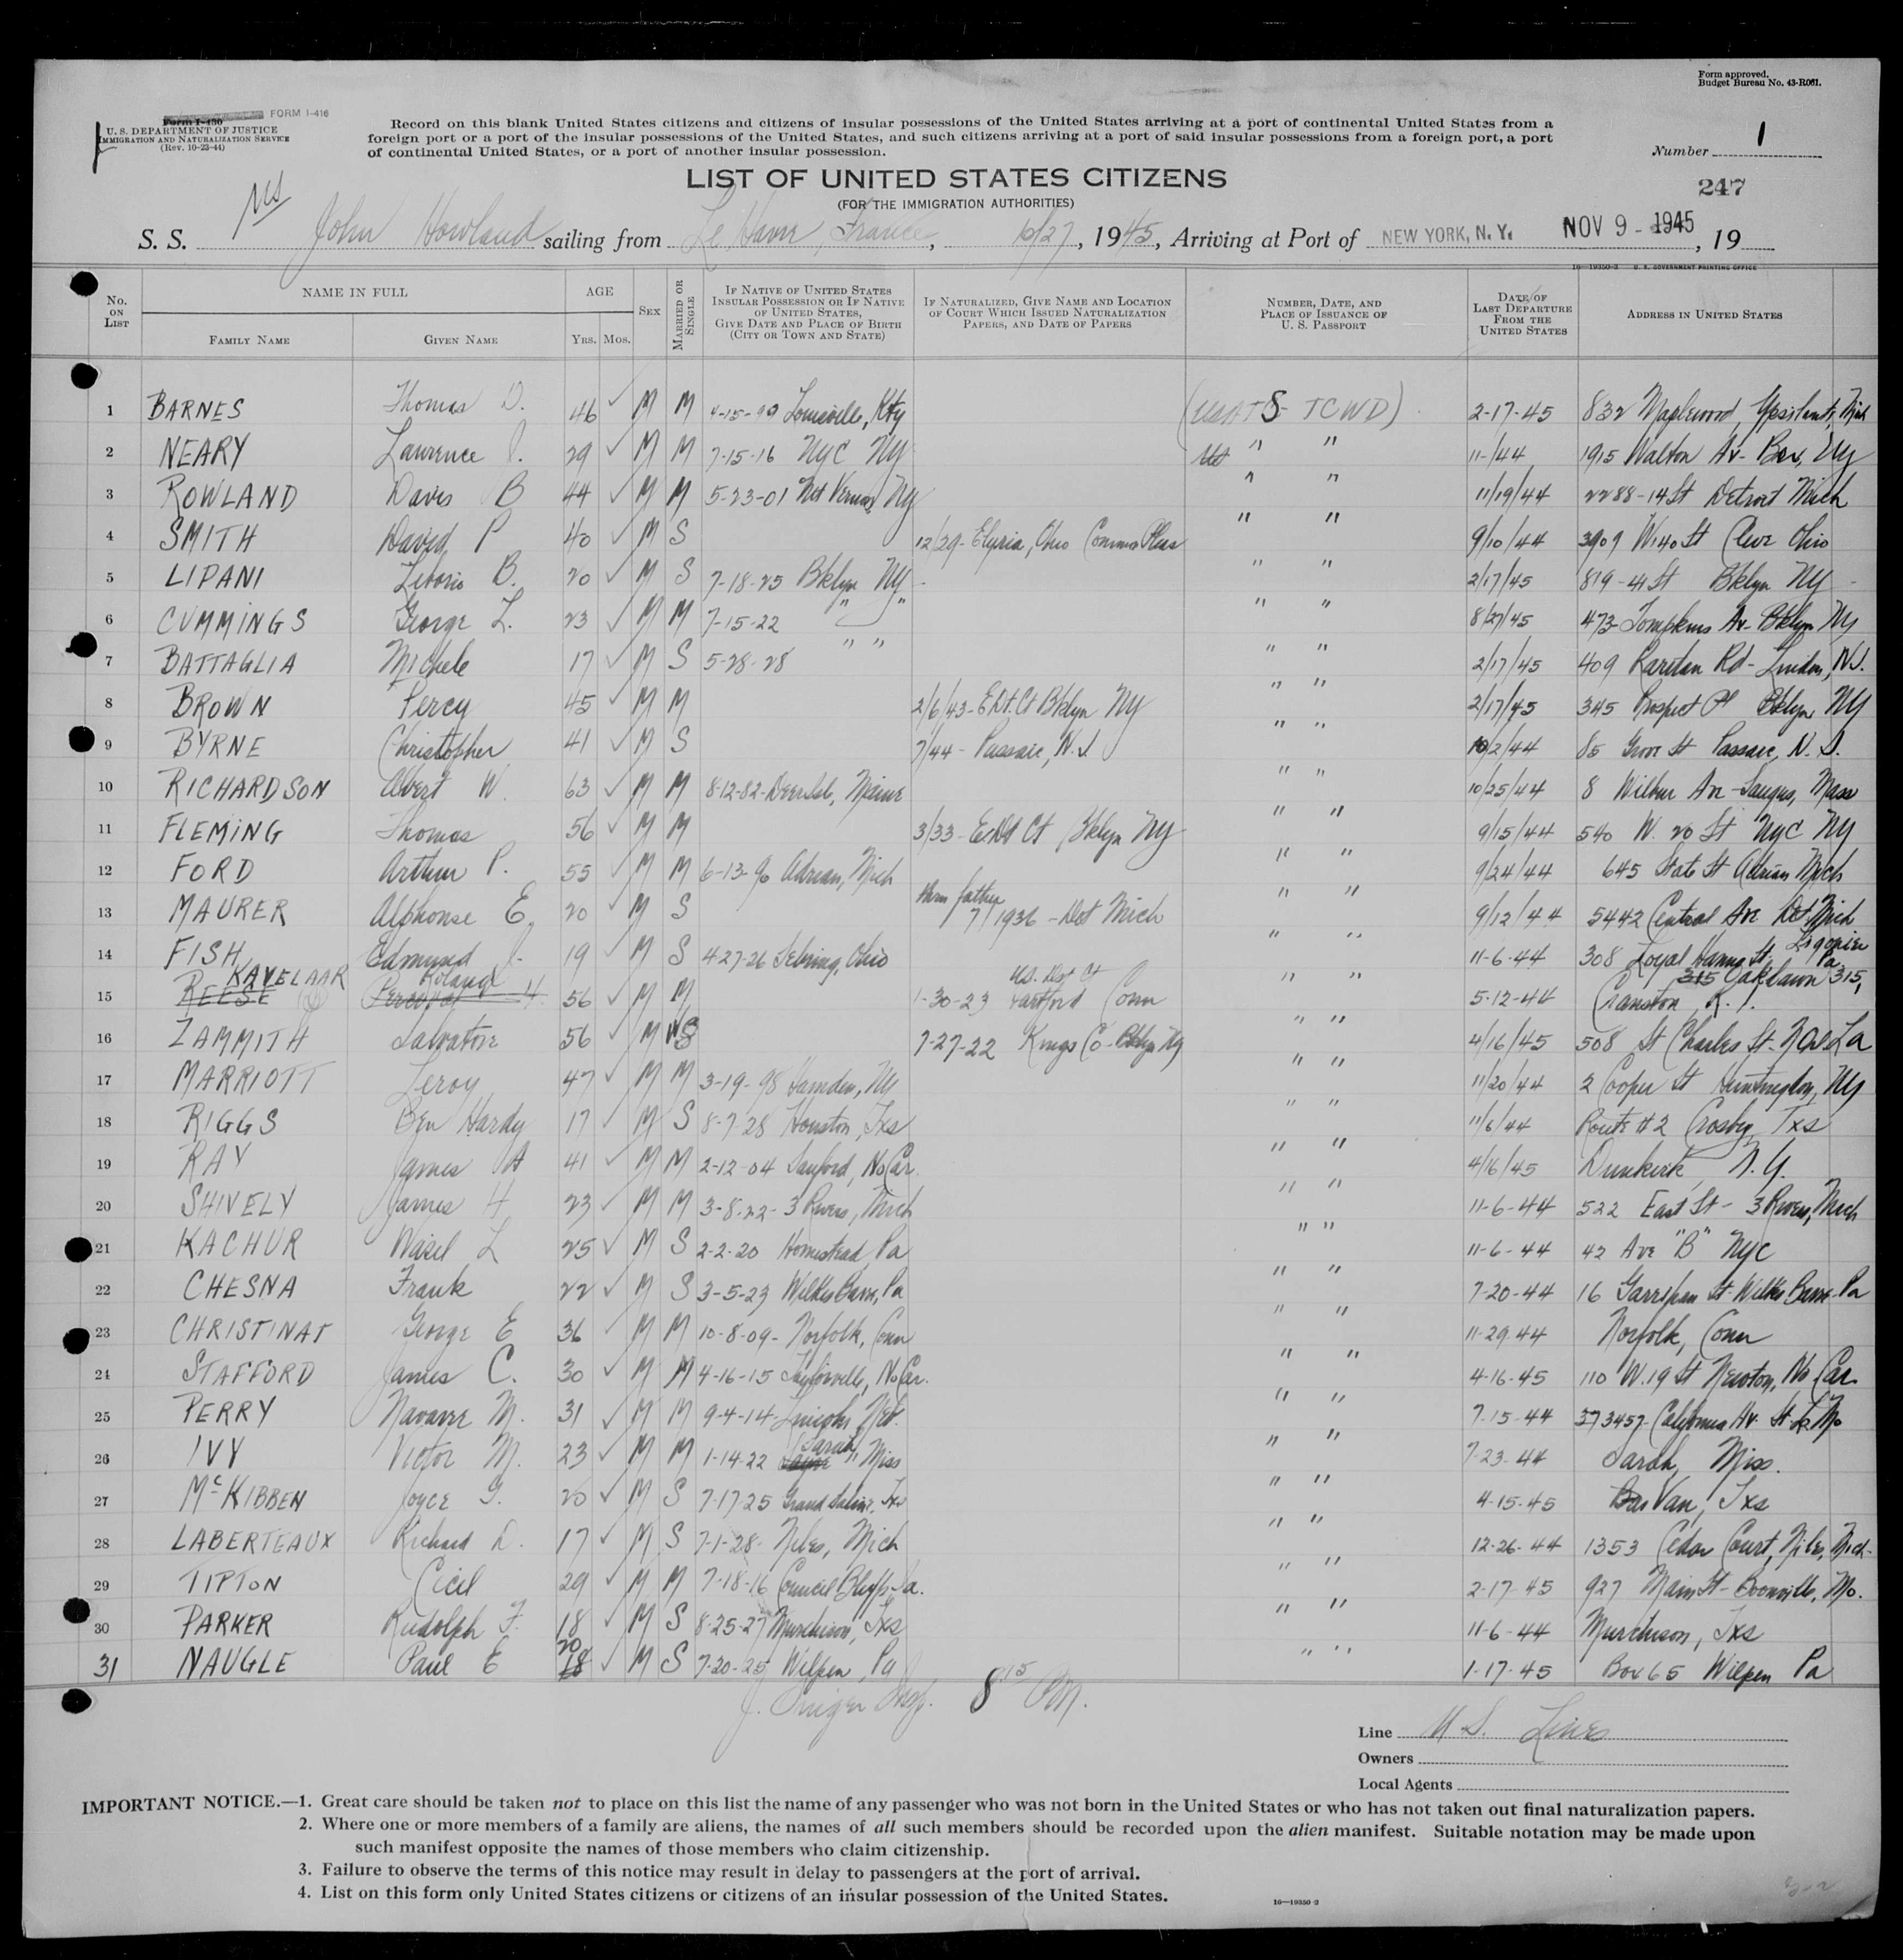 Form approved.
Budget Bureau No. 43-R061.
Form I-430 FORM I-416
U. S. DEPARTMENT OF JUSTICE
IMMIGRATION AND NATURALIZATION SERVICE
(Rev. 10-23-44)
Record on this blank United States citizens and citizens of insular possessions of the United States arriving at a port of continental United States from a
foreign port or a port of the insular possessions of the United States, and such citizens arriving at a port of said insular possessions from a foreign port, a port
of continental United States, or a port of another insular possession.
Number 1
247
LIST OF UNITED STATES CITIZENS
(FOR THE IMMIGRATION AUTHORITIES)
S. S. John Howland sailing from Le Havre, France, 10/27, 1945, Arriving at Port of NEW YORK, N. Y. NOV 9 - 1945, 19
16—19350-2 U. S. GOVERNMENT PRINTING OFFICE
No. on List
NAME IN FULL
Family Name
Given Name
AGE
Yrs. Mos.
Sex
Married or Single
If Native of United States Insular Possession or If Native of United States, Give Date and Place of Birth (City or Town and State)
If Naturalized, Give Name and Location of Court Which Issued Naturalization Papers, and Date of Papers
Number, Date, and Place of Issuance of U. S. Passport
Date of Last Departure From the United States
Address in United States
1 BARNES Thomas D. 46 ✓ M M 4-15-99 Louisville, Kty TCWD) 2-17-45 832 Maplewood, Ypsilanti, Mich
2 NEARY Lawrence J. 29 ✓ M M 7-15-16 NYC NY " " 11-/44 1915 Walton Av- Bx, NY
3 ROWLAND Davis B 44 ✓ M M 5-23-01 Mt Vernon, NY " " 11/19/44 2288-14 St Detroit Mich
4 SMITH David P 40 ✓ M S 12/29- Elyria, Ohio Common Pleas " " 9/10/44 3909 W. 140 St Cleve Ohio
5 LIPANI Liborio B. 20 ✓ M S 7-18-25 Bklyn NY " " 2/17/45 819-41 St Bklyn NY
6 CUMMINGS George L. 23 ✓ M M 7-15-22 " " " " 8/27/45 473 Tompkins Av- Bklyn NY
7 BATTAGLIA Michele 17 ✓ M S 5-28-28 " " " " 2/17/45 409 Raritan Rd- Linden, N.J.
8 BROWN Percy 45 ✓ M M 2/6/43- E Dt. Ct Bklyn NY " " 2/17/45 345 Prospect Pl Bklyn NY
9 BYRNE Christopher 41 ✓ M S 7/44 - Passaic, N.J " " 10/2/44 85 Grove St Passaic, N. J.
10 RICHARDSON Albert W. 63 ✓ M M 8-12-82- Deer Isl, Maine " " 10/25/44 8 Wilbur Ave- Saugus, Mass
11 FLEMING Thomas 56 ✓ M M 3/33- E. Dt Ct Bklyn NY " " 9/15/44 540 W. 20 St NYC NY
12 FORD Arthur P. 55 ✓ M M 6-13-90 Adrian, Mich " " 9/24/44 645 State St Adrian Mich
13 MAURER Alphonse E. 20 ✓ M S thru father 7/1936 - Det Mich " " 9/12/44 5442 Central Ave Det Mich
14 FISH Edmund J. 19 ✓ M S 4-27-26 Sebring, Ohio " " 11-6-44 308 Loyal Hanna St, Ligonier Pa
15 REESE KAVELAAR Percival Roland H. 56 ✓ M M 1-30-23 U.S. Dist Ct Hartford Conn " " 5-12-44 315 Oaklawn 315, Cranston R. I.
16 ZAMMITH Salvatore 56 ✓ M 7-27-22 Kings Co- Bklyn Ny " " 4/16/45 508 St Charles St- N Orls La
17 MARRIOTT Leroy 47 ✓ M M 3-19-98 Hamden, NY " " 11/20/44 2 Cooper St Huntington, NY
18 RIGGS Ben Hardy 17 ✓ M S 8-7-28 Houston, Txs " " 11/6/44 Route #2 Crosby Txs
19 RAY James A 41 ✓ M M 2-12-04 Sanford, No Car. " " 4/16/45 Dunkirk, N.Y.
20 SHIVELY James H 23 ✓ M M 3-8-22- 3 Rivers, Mich " " 11-6-44 522 East St - 3 Rivers, Mich
21 KACHUR Wasil L 25 ✓ M S 2-2-20 Homestead, Pa " " 11-6-44 42 Ave "B" NYC
22 CHESNA Frank 22 ✓ M S 3-5-23 Wilkes Barre, Pa " " 7-20-44 16 St- Wilkes Barre- Pa
23 CHRISTINAT George E 36 ✓ M M 10-8-09- Norfolk, Conn " " 11-29-44 Norfolk, Conn
24 STAFFORD James C. 30 ✓ M M 4-16-15 Taylorsville, No Car. " " 4-16-45 110 W. 19 St Newton, No Car.
25 PERRY Navarre M. 31 ✓ M M 9-4-14- Lincoln Neb. " " 7-15-44 California Av- St. L. Mo
26 IVY Victor M. 23 ✓ M M 1-14-22 Sarah, Miss " " 7-23-44 Sarah, Miss.
27 McKIBBEN Joyce G. 20 ✓ M S 7-17-25 Grand Saline, Txs " " 4-15-45 Van, Txs
28 LABERTEAUX Richard D. 17 ✓ M S 7-1-28- Niles, Mich " " 12-26-44 1353 Cedar Court, Niles, Mich.
29 TIPTON Cecil 29 ✓ M M 7-18-16 Council Bluffs- Ia. " " 2-17-45 927 Main St- Boonville, Mo.
30 PARKER Rudolph F. 18 ✓ M S 8-25-27 Murchison, Txs " " 11-6-44 Murchison, Txs
31 NAUGLE Paul E 20 18 ✓ M S 7-20-25 Wilpen, Pa " " 1-17-45 Box 65 Wilpen Pa
8 15 PM.
Line U.S. Lines
Owners
Local Agents
IMPORTANT NOTICE.—1. Great care should be taken not to place on this list the name of any passenger who was not born in the United States or who has not taken out final naturalization papers.
2. Where one or more members of a family are aliens, the names of all such members should be recorded upon the alien manifest. Suitable notation may be made upon
such manifest opposite the names of those members who claim citizenship.
3. Failure to observe the terms of this notice may result in delay to passengers at the port of arrival.
4. List on this form only United States citizens or citizens of an insular possession of the United States.
16—19350-2